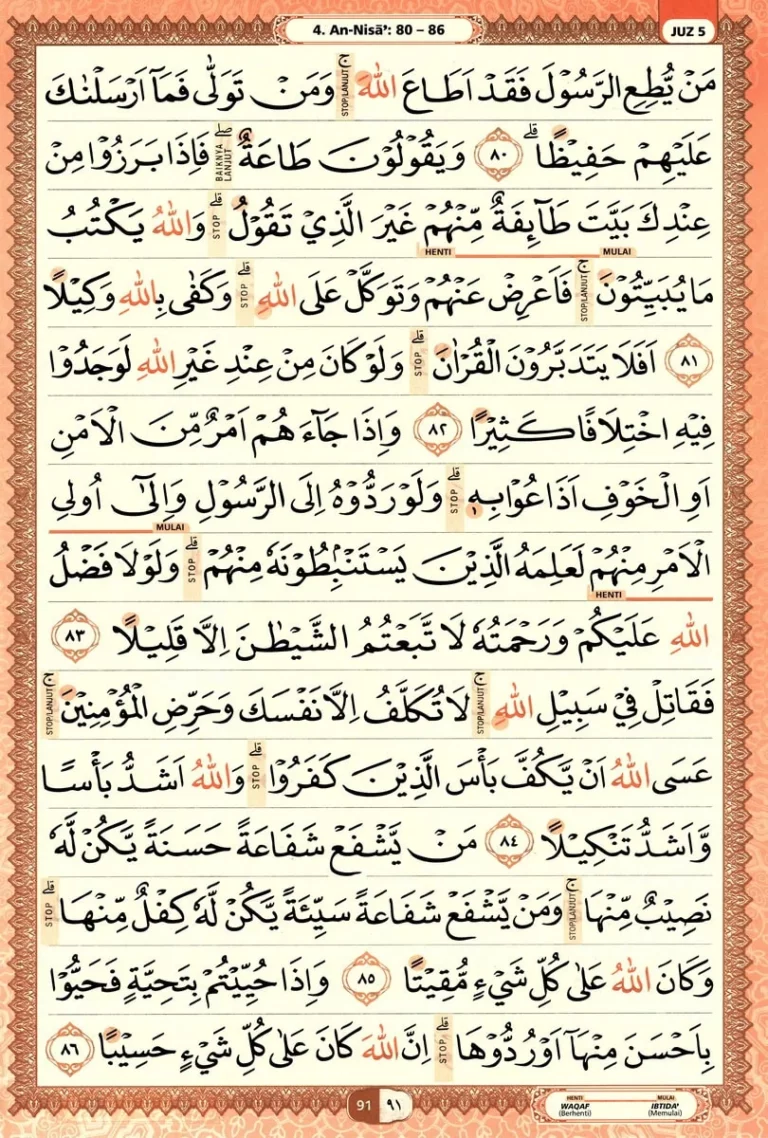 4. An-Nisā': 80 – 86
JUZ 5
مَنْ يُّطِعِ الرَّسُوْلَ فَقَدْ اَطَاعَ اللّٰهَ ۚ STOP/LANJUT وَمَنْ تَوَلّٰى فَمَآ اَرْسَلْنٰكَ
عَلَيْهِمْ حَفِيْظًا ۗ ٨٠ وَيَقُوْلُوْنَ طَاعَةٌ ۖ BAIKNYA LANJUT فَاِذَا بَرَزُوْا مِنْ
عِنْدِكَ بَيَّتَ طَاۤىِٕفَةٌ مِّنْهُمْ غَيْرَ الَّذِيْ تَقُوْلُ ۗ STOP وَاللّٰهُ يَكْتُبُ
HENTI MULAI
مَا يُبَيِّتُوْنَ ۚ STOP/LANJUT فَاَعْرِضْ عَنْهُمْ وَتَوَكَّلْ عَلَى اللّٰهِ ۗ STOP وَكَفٰى بِاللّٰهِ وَكِيْلًا
٨١ اَفَلَا يَتَدَبَّرُوْنَ الْقُرْاٰنَ ۗ STOP وَلَوْ كَانَ مِنْ عِنْدِ غَيْرِ اللّٰهِ لَوَجَدُوْا
فِيْهِ اخْتِلَافًا كَثِيْرًا ٨٢ وَاِذَا جَاۤءَهُمْ اَمْرٌ مِّنَ الْاَمْنِ
اَوِ الْخَوْفِ اَذَاعُوْا بِهٖ ۗ STOP وَلَوْ رَدُّوْهُ اِلَى الرَّسُوْلِ وَاِلٰٓى اُولِى
MULAI
الْاَمْرِ مِنْهُمْ لَعَلِمَهُ الَّذِيْنَ يَسْتَنْۢبِطُوْنَهٗ مِنْهُمْ ۗ STOP وَلَوْلَا فَضْلُ
HENTI
اللّٰهِ عَلَيْكُمْ وَرَحْمَتُهٗ لَاتَّبَعْتُمُ الشَّيْطٰنَ اِلَّا قَلِيْلًا ٨٣
فَقَاتِلْ فِيْ سَبِيْلِ اللّٰهِ ۚ STOP/LANJUT لَا تُكَلَّفُ اِلَّا نَفْسَكَ وَحَرِّضِ الْمُؤْمِنِيْنَ ۚ STOP/LANJUT
عَسَى اللّٰهُ اَنْ يَّكُفَّ بَأْسَ الَّذِيْنَ كَفَرُوْا ۗ STOP وَاللّٰهُ اَشَدُّ بَأْسًا
وَّاَشَدُّ تَنْكِيْلًا ٨٤ مَنْ يَّشْفَعْ شَفَاعَةً حَسَنَةً يَّكُنْ لَّهٗ
نَصِيْبٌ مِّنْهَا ۚ STOP/LANJUT وَمَنْ يَّشْفَعْ شَفَاعَةً سَيِّئَةً يَّكُنْ لَّهٗ كِفْلٌ مِّنْهَا ۗ STOP
وَكَانَ اللّٰهُ عَلٰى كُلِّ شَيْءٍ مُّقِيْتًا ٨٥ وَاِذَا حُيِّيْتُمْ بِتَحِيَّةٍ فَحَيُّوْا
بِاَحْسَنَ مِنْهَآ اَوْ رُدُّوْهَا ۗ STOP اِنَّ اللّٰهَ كَانَ عَلٰى كُلِّ شَيْءٍ حَسِيْبًا ٨٦
91 ٩١
HENTI MULAI
WAQAF IBTIDA'
(Berhenti) (Memulai)